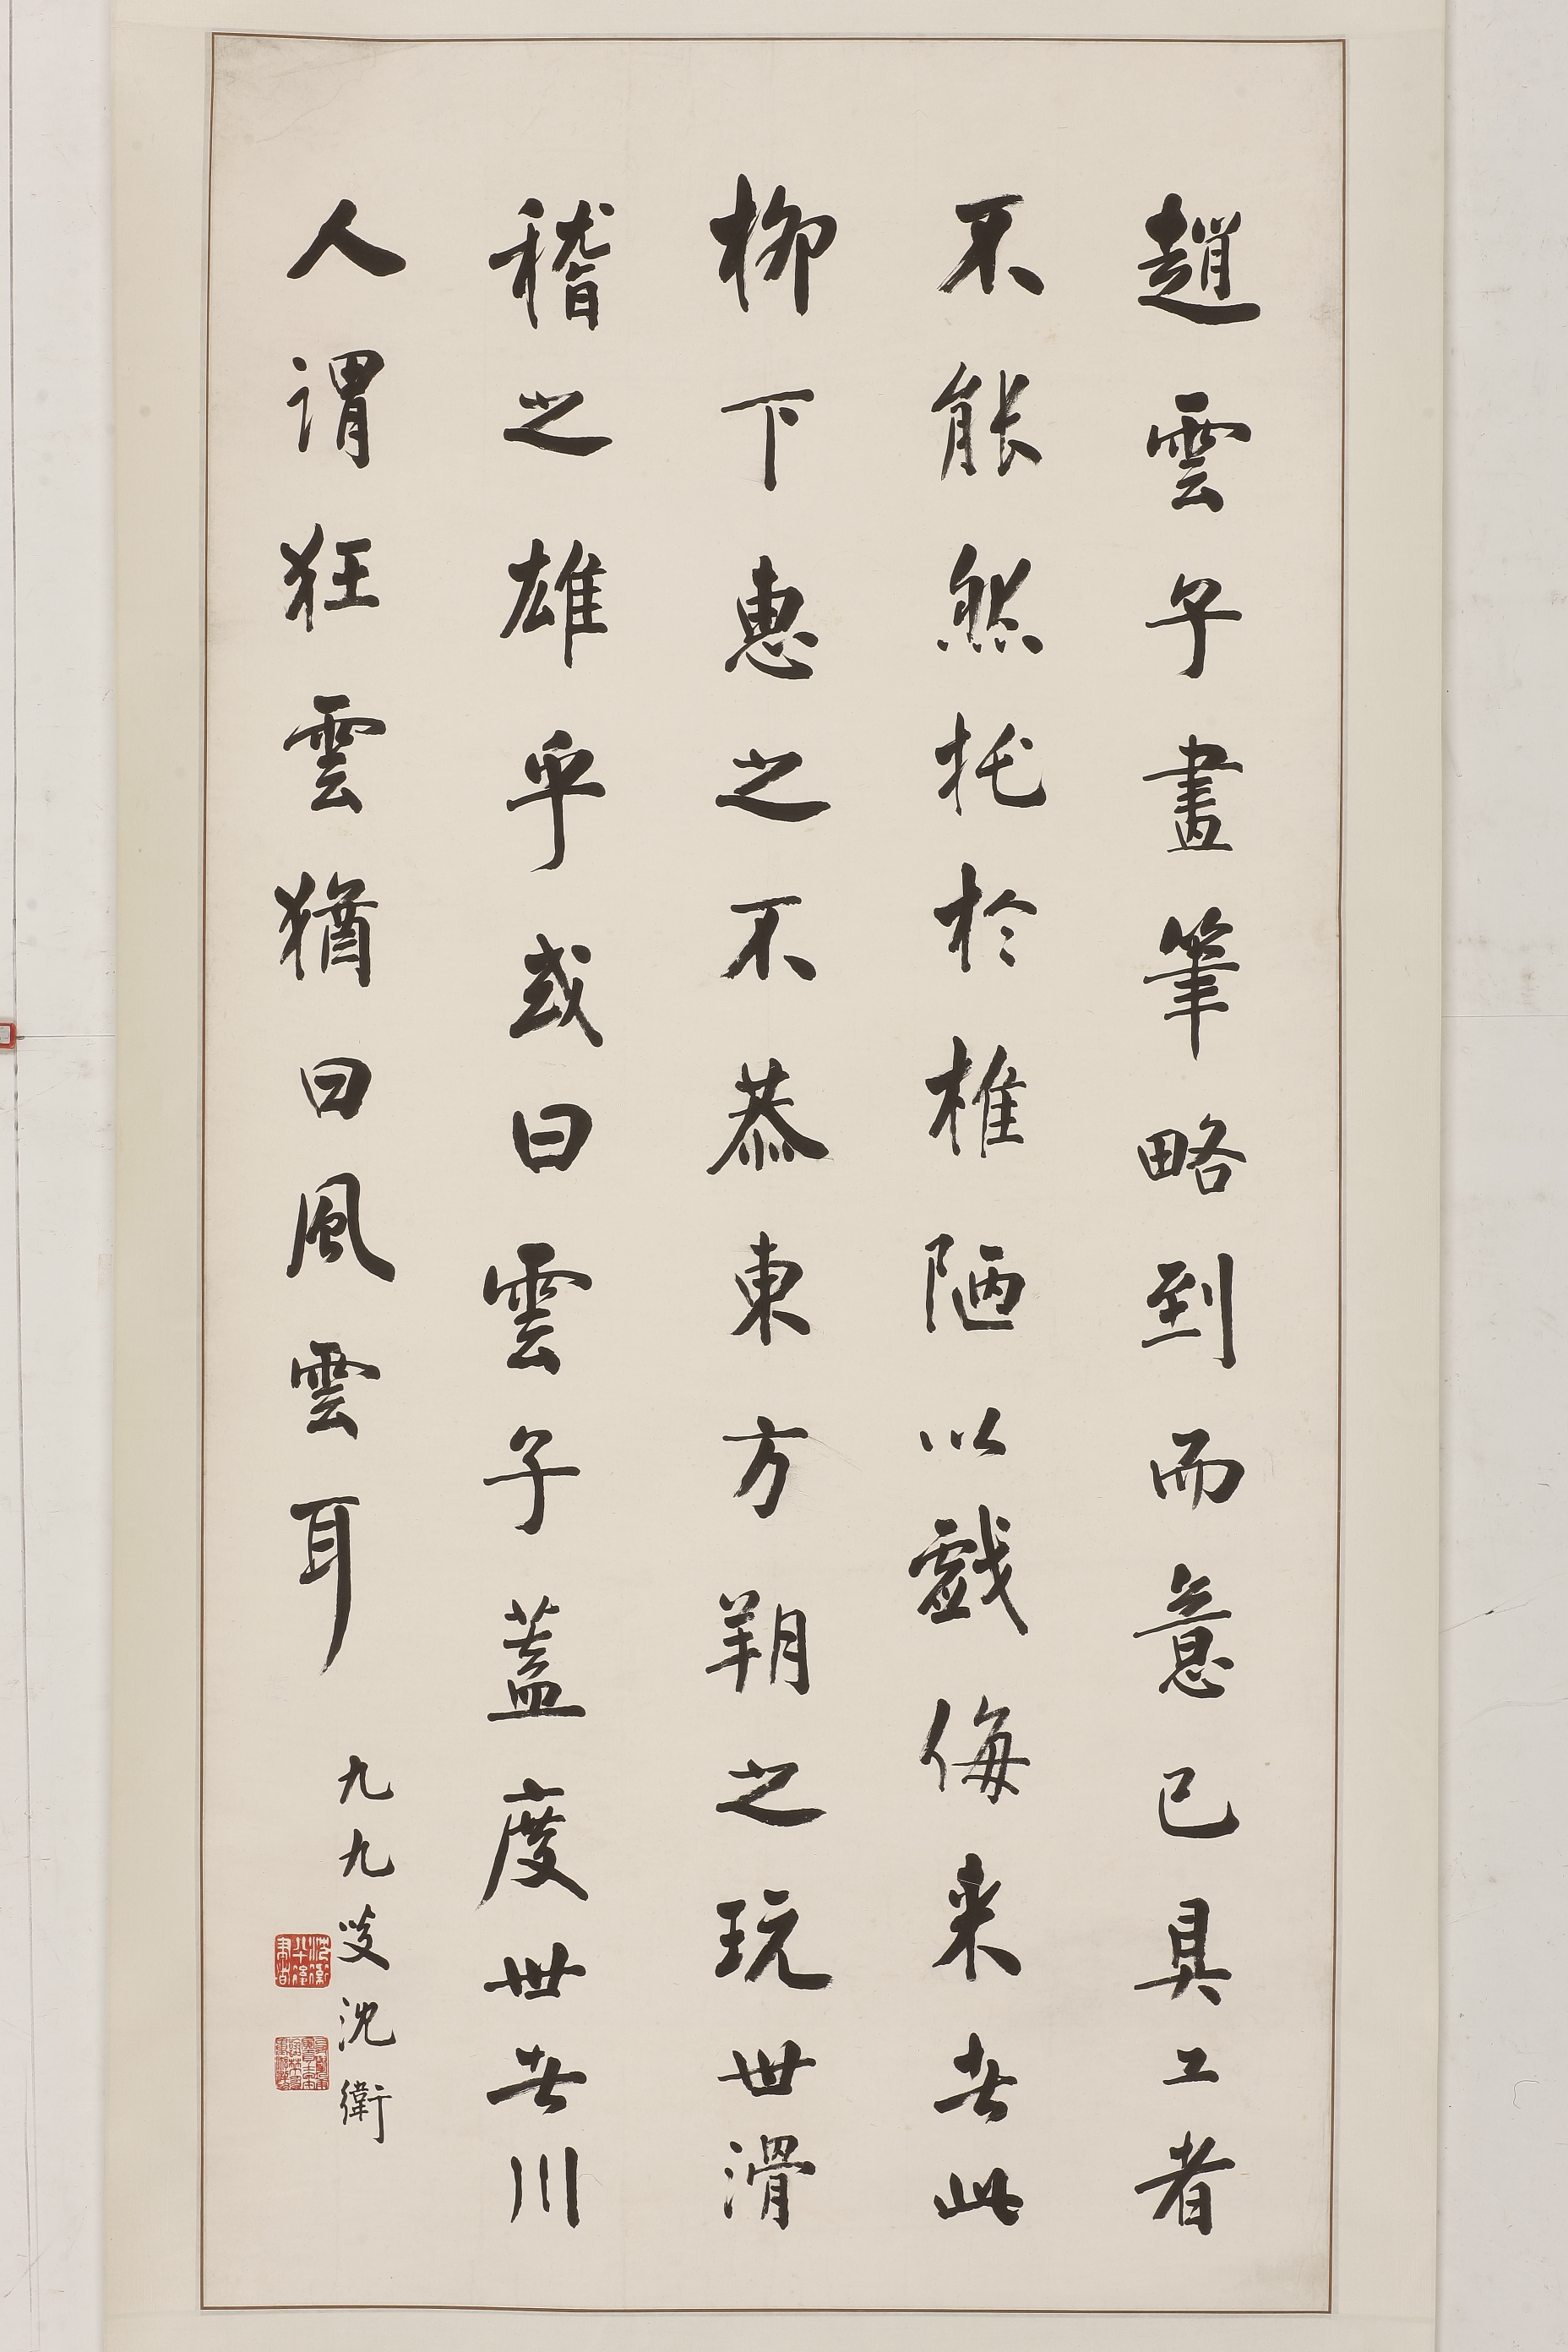 趙雲子畫筆略到而意已具工者
不能然托於椎陋以戲侮来者此
柳下惠之不恭東方朔之玩世滑
稽之雄乎或曰雲子蓋度世者川
人謂狂雲猶曰風雲耳
九九叟沈衛